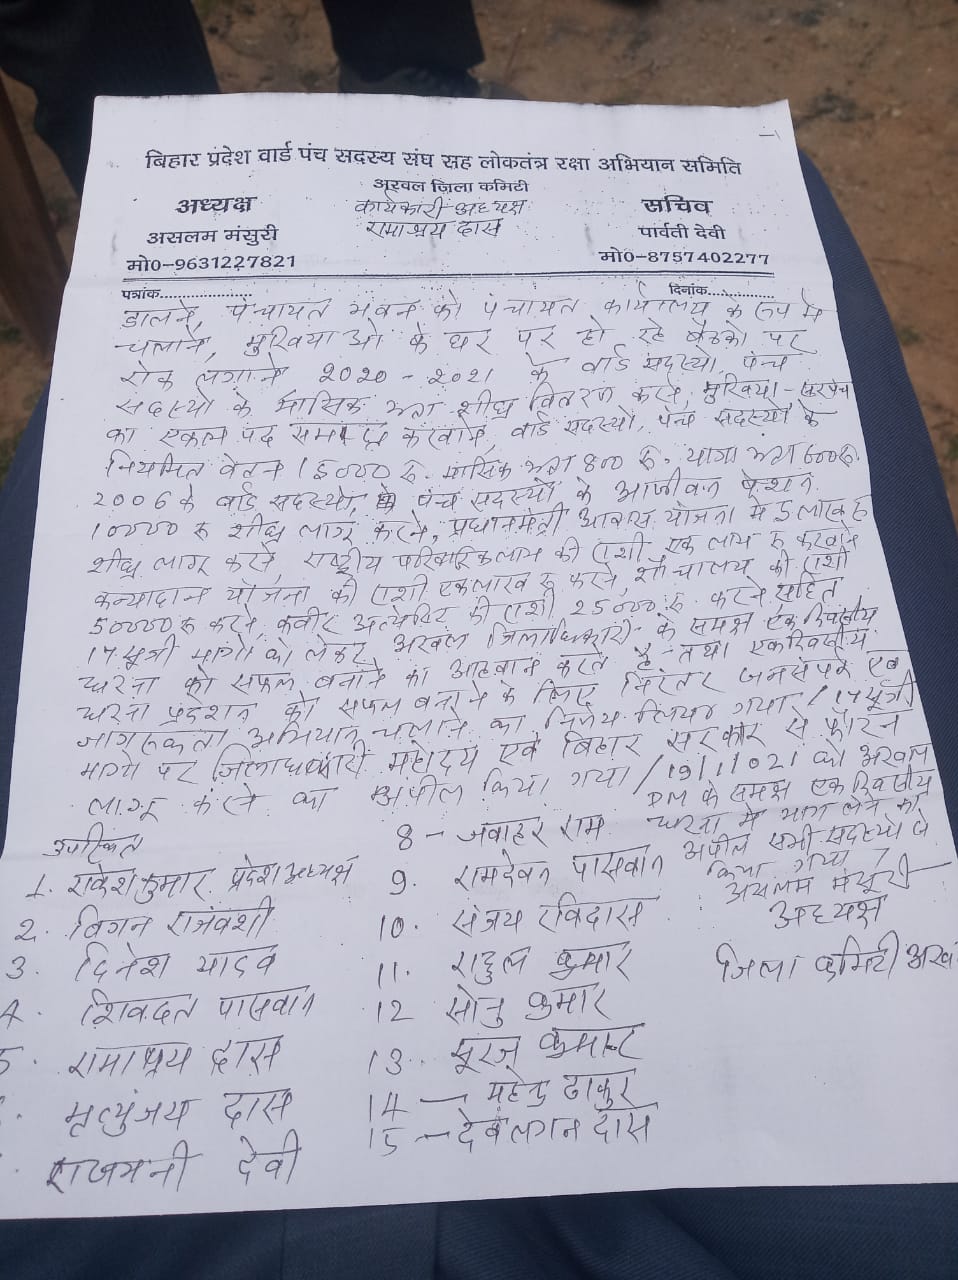 बिहार प्रदेश वार्ड पंच सदस्य संघ सह लोकतंत्र रक्षा अभियान समिति
अरवल ज़िला कमिटी
अध्यक्ष कार्यकारी अध्यक्ष सचिव
असलम मंसुरी रामाश्रय दास पार्वती देवी
मो0-9631227821 मो0-8757402277
पत्रांक..................... दिनांक.....................
डालने, पंचायत भवन को पंचायत कार्यालय के रूप मे
चलाने, मुखिया ओ के घर पर हो रहे बैठको पर
रोक लगाने 2020-2021 के वार्ड सदस्यो, पंच
सदस्यो के मासिक भत्ता शीघ्र वितरण करने, मुखिया-सरपंच
का एकल पद समाप्त करवाने, वार्ड सदस्यो, पंच सदस्यो के
नियमित वेतन 15000 रु. मासिक भत्ता 800 रु. यात्रा भत्ता 600रु.
2006 के वार्ड सदस्यो, पंच सदस्यो के आजीवन पेंशन
10000 रु शीघ्र लागू करने, प्रधानमंत्री आवास योजना मे 5 लाख रु
शीघ्र लागू करने राष्ट्रीय परिवारिक लाभ की राशी एक लाख रु करवाने
कन्यादान योजना की राशी एकलाख रु करने, शौचालय की राशी
50000 रु करने, कबीर अन्त्येष्टि की राशी 25000 रु. करने सहित
17 सूत्री मांगो को लेकर अरवल जिलाधिकारी के समक्ष एकदिवसीय
धरना को सफल बनाने का आहवान करते है तथा एकदिवसीय
धरना प्रदर्शन को सफल बनाने के लिए निरंतर जनसंपर्क एवं
जागरूकता अभियान चलाने का निर्णय लिया गया / 17 सूत्री
मांगो पर जिलाधिकारी महोदय एवं बिहार सरकार से फौरन
लागू करने का अपील किया गया / 19/11/021 को अरवल
DM के समक्ष एक दिवसीय
धरना मे भाग लेने का
अपील सभी सदस्यो से
किया गया
असलम मंसूरी
अध्यक्ष
जिला कमिटी
उपस्थित
1. राकेश कुमार प्रदेश अध्यक्ष
2. विगन राजवंशी
3. दिनेश यादव
4. शिवदत पासवान
5. रामाश्रय दास
मृत्युंजय दास
राजमनी देवी
8 - जवाहर राम
9. रामदेवन पासवान
10. संजय रविदास
11. राहुल कुमार
12 सोनु कुमार
13. सूरज कुमार
14 - महेन्द्र ठाकुर
15 - देवलगन दास